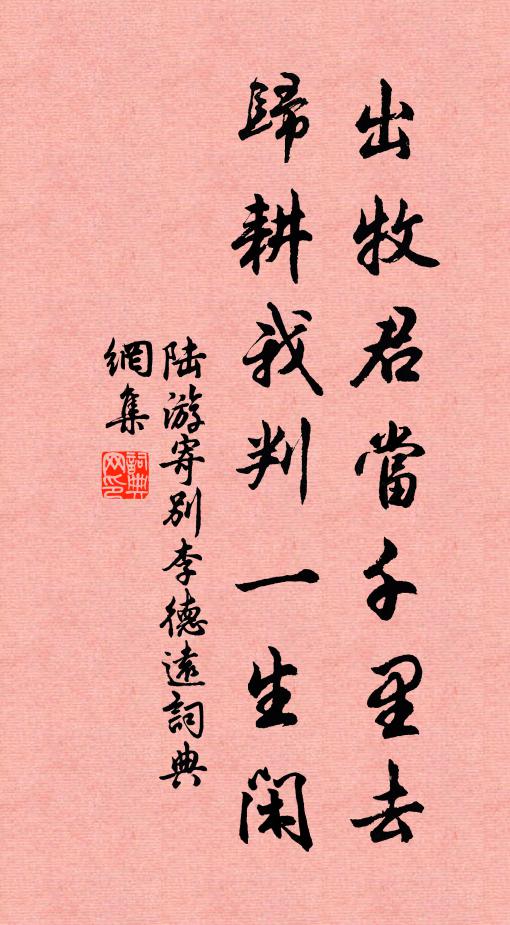 出牧君當千里去
歸耕我判一生閑
陆游寄别李德遠詞典
網集
詞典
网印